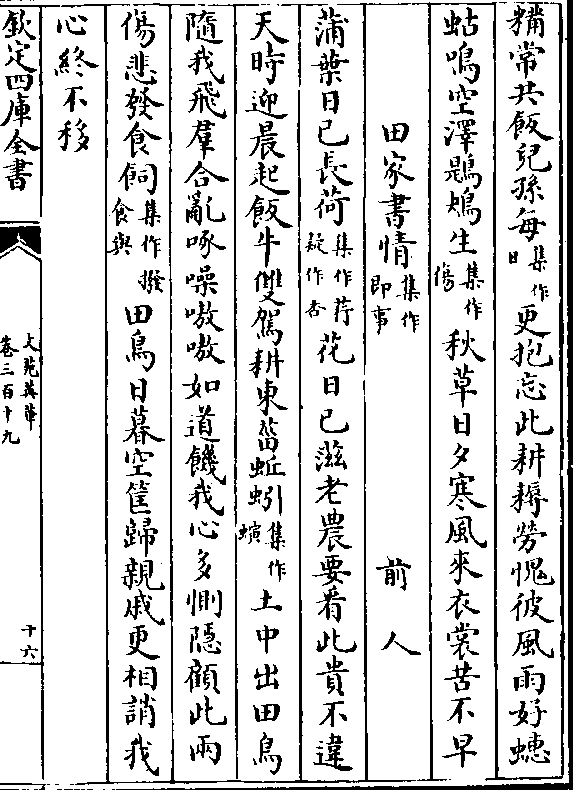 糒常共飯兒孫每集作日更抱忘此耕耨勞愧彼風雨好蟪
蛄鳴空澤鶗鴂生集作傷秋草日夕寒風來衣裳苦不早
田家書情集作即事　前人
蒲葉日已長荷集作荇疑作杏花日已滋老農要看此貴不違
天時迎晨起飯牛雙駕耕東菑蚯蚓集作螾土中出田鳥
隨我飛羣合亂啄噪嗷嗷如道饑我心多惻隱顧此兩
傷悲發食飼集作撥食與田鳥日暮空筐歸親戚更相誚我
心終不移
欽定四庫全書
文苑英華
卷三百十九
十六